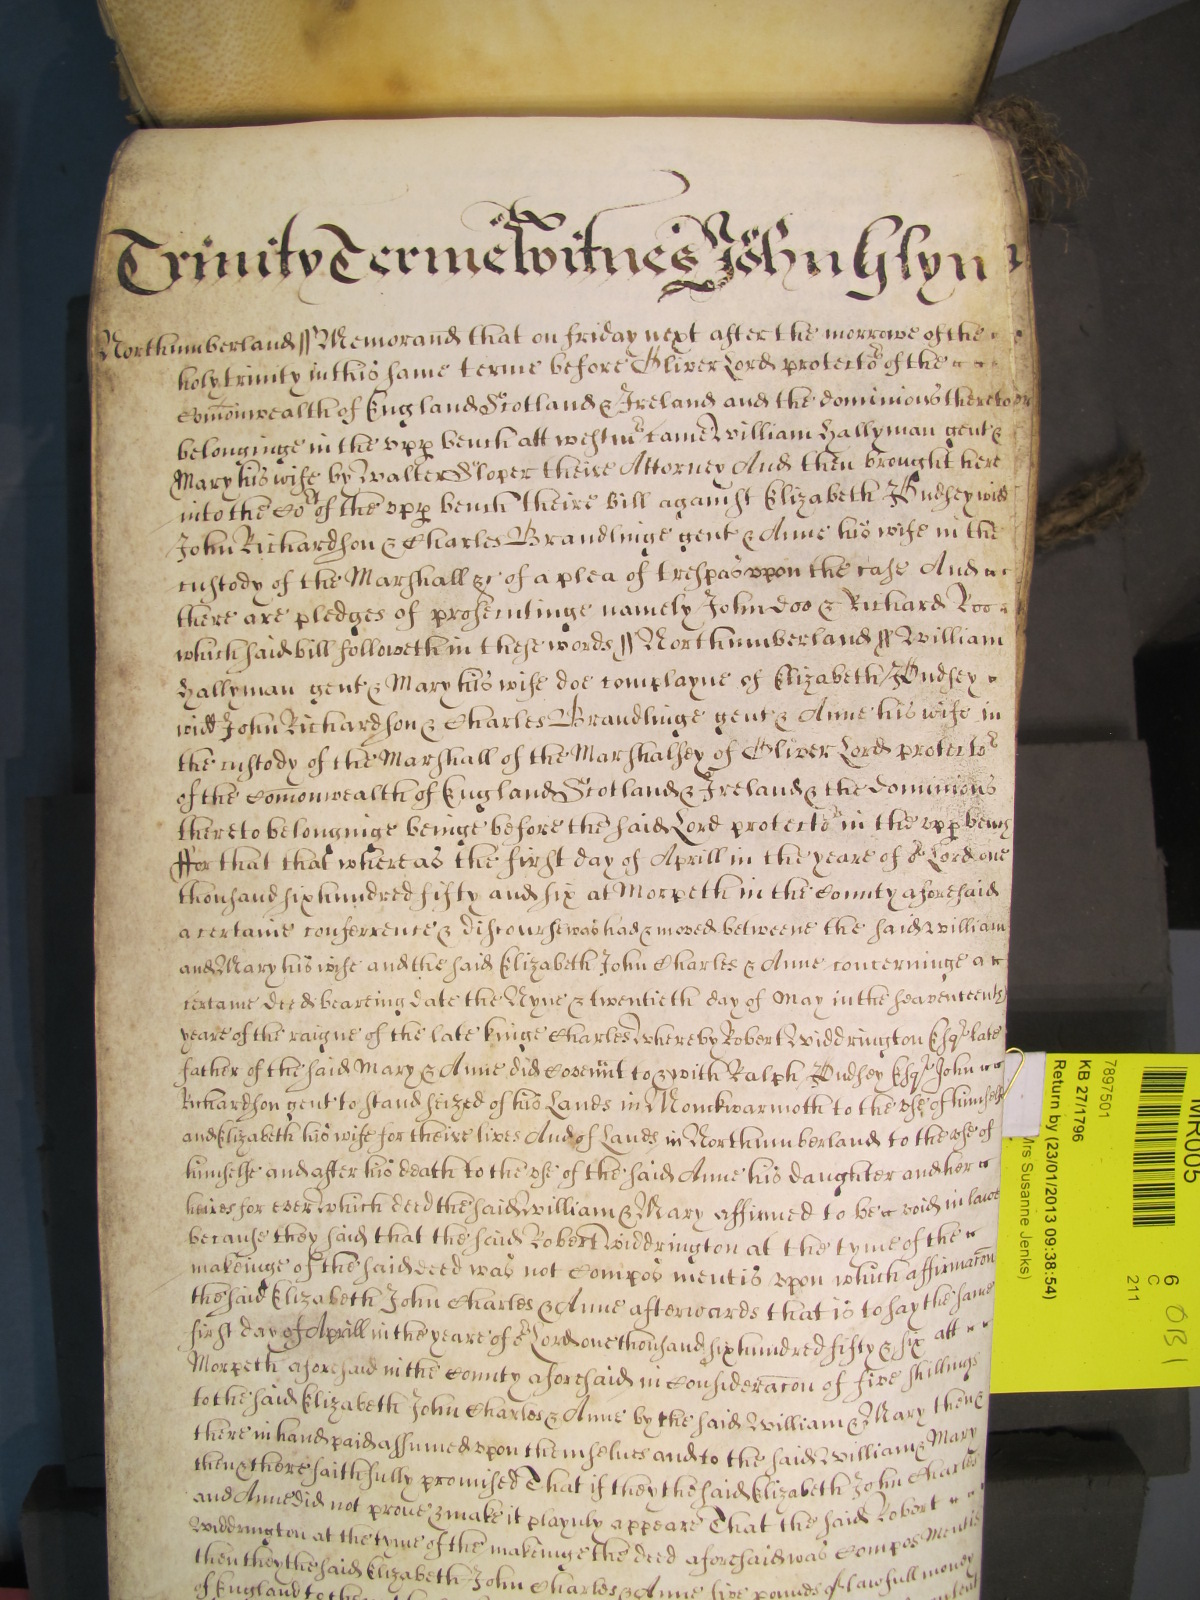 Trinity Terme Witnes John Glyn
Northumberland ss Memorand that on friday next after the morrowe of the
holy trinity in this same terme before Oliver Lord protector of the
Comonwealth of England Scotland & Ireland and the dominions thereto
belonginge in the upp bench att westmr came William Hallyman gent &
Mary his wife by Walter Sloper theire Attorney And then brought here
into the Cot of the upp bench theire bill against Elizabeth Pudsey widd
John Richardson & Charles Brandlinge gent & Anne his wife in the
custody of the Marshall &c of a plea of trespas upon the case And
there are pledges of prosecutinge namely John Doo & Richard Roo
which said bill followeth in these words ss Northumberland ss William
Hallyman gent & Mary his wife doe complayne of Elizabeth Pudsey
widd John Richardson & Charles Brandlinge gent & Anne his wife in
the custody of the Marshall of the Marshalsey of Oliver Lord protector
of the Comonwealth of England Scotland & Ireland & the dominions
thereto belonginge beinge before the said Lord protector in the upp bench
ffor that that whereas the first day of Aprill in the yeare of or Lord one
thousand six hundred fifty and six at Morpeth in the County aforesaid
a certaine conferrence & discourse was had & moved betweene the said William
and Mary his wife and the said Elizabeth John Charles & Anne concerninge a
certaine deed beareing date the Nyne & twentieth day of May in the seaventeenth
yeare of the raigne of the late kinge Charles whereby Robert Widdrington Esqr late
father of the said Mary & Anne did covennt to & with Ralph Pudsey Esqr John
Richardson gent to stand seized of his Lands in Monckwarmoth to the use of himself
and Elizabeth his wife for theire lives And of Lands in Northumberland to the use of
himselfe and after his death to the use of the said Anne his daughter and her
heires for ever which deed the said William & Mary affirmed to be void in lawe
because they said that the said Robert Widdrington at the tyme of the
makeinge of the said deed was not Compos mentis upon which affirmacon
the said Elizabeth John Charles & Anne afterwards that is to say the same
first day of Aprill in the yeare of or Lord one thousand six hundred fifty & six att
Morpeth aforesaid in the County aforesaid in Consideracon of five shillings
to the said Elizabeth John Charles & Anne by the said William & Mary then &
there in hand paid assumed upon themselves and to the said William & Mary
then & there faithfully promised That if they the said Elizabeth John Charles
and Anne did not prove & make it playnly appeare That the said Robert
Widdrington at the tyme of the makeinge the deed aforesaid was Compos Mentis
then they the said Elizabeth John Charles & Anne five pounds of lawfull money
of England to the
MR005
7897501
KB 27/1796
Return by (23/01/2013 09:38:54)
Mrs Susanne Jenks)
6
C
211